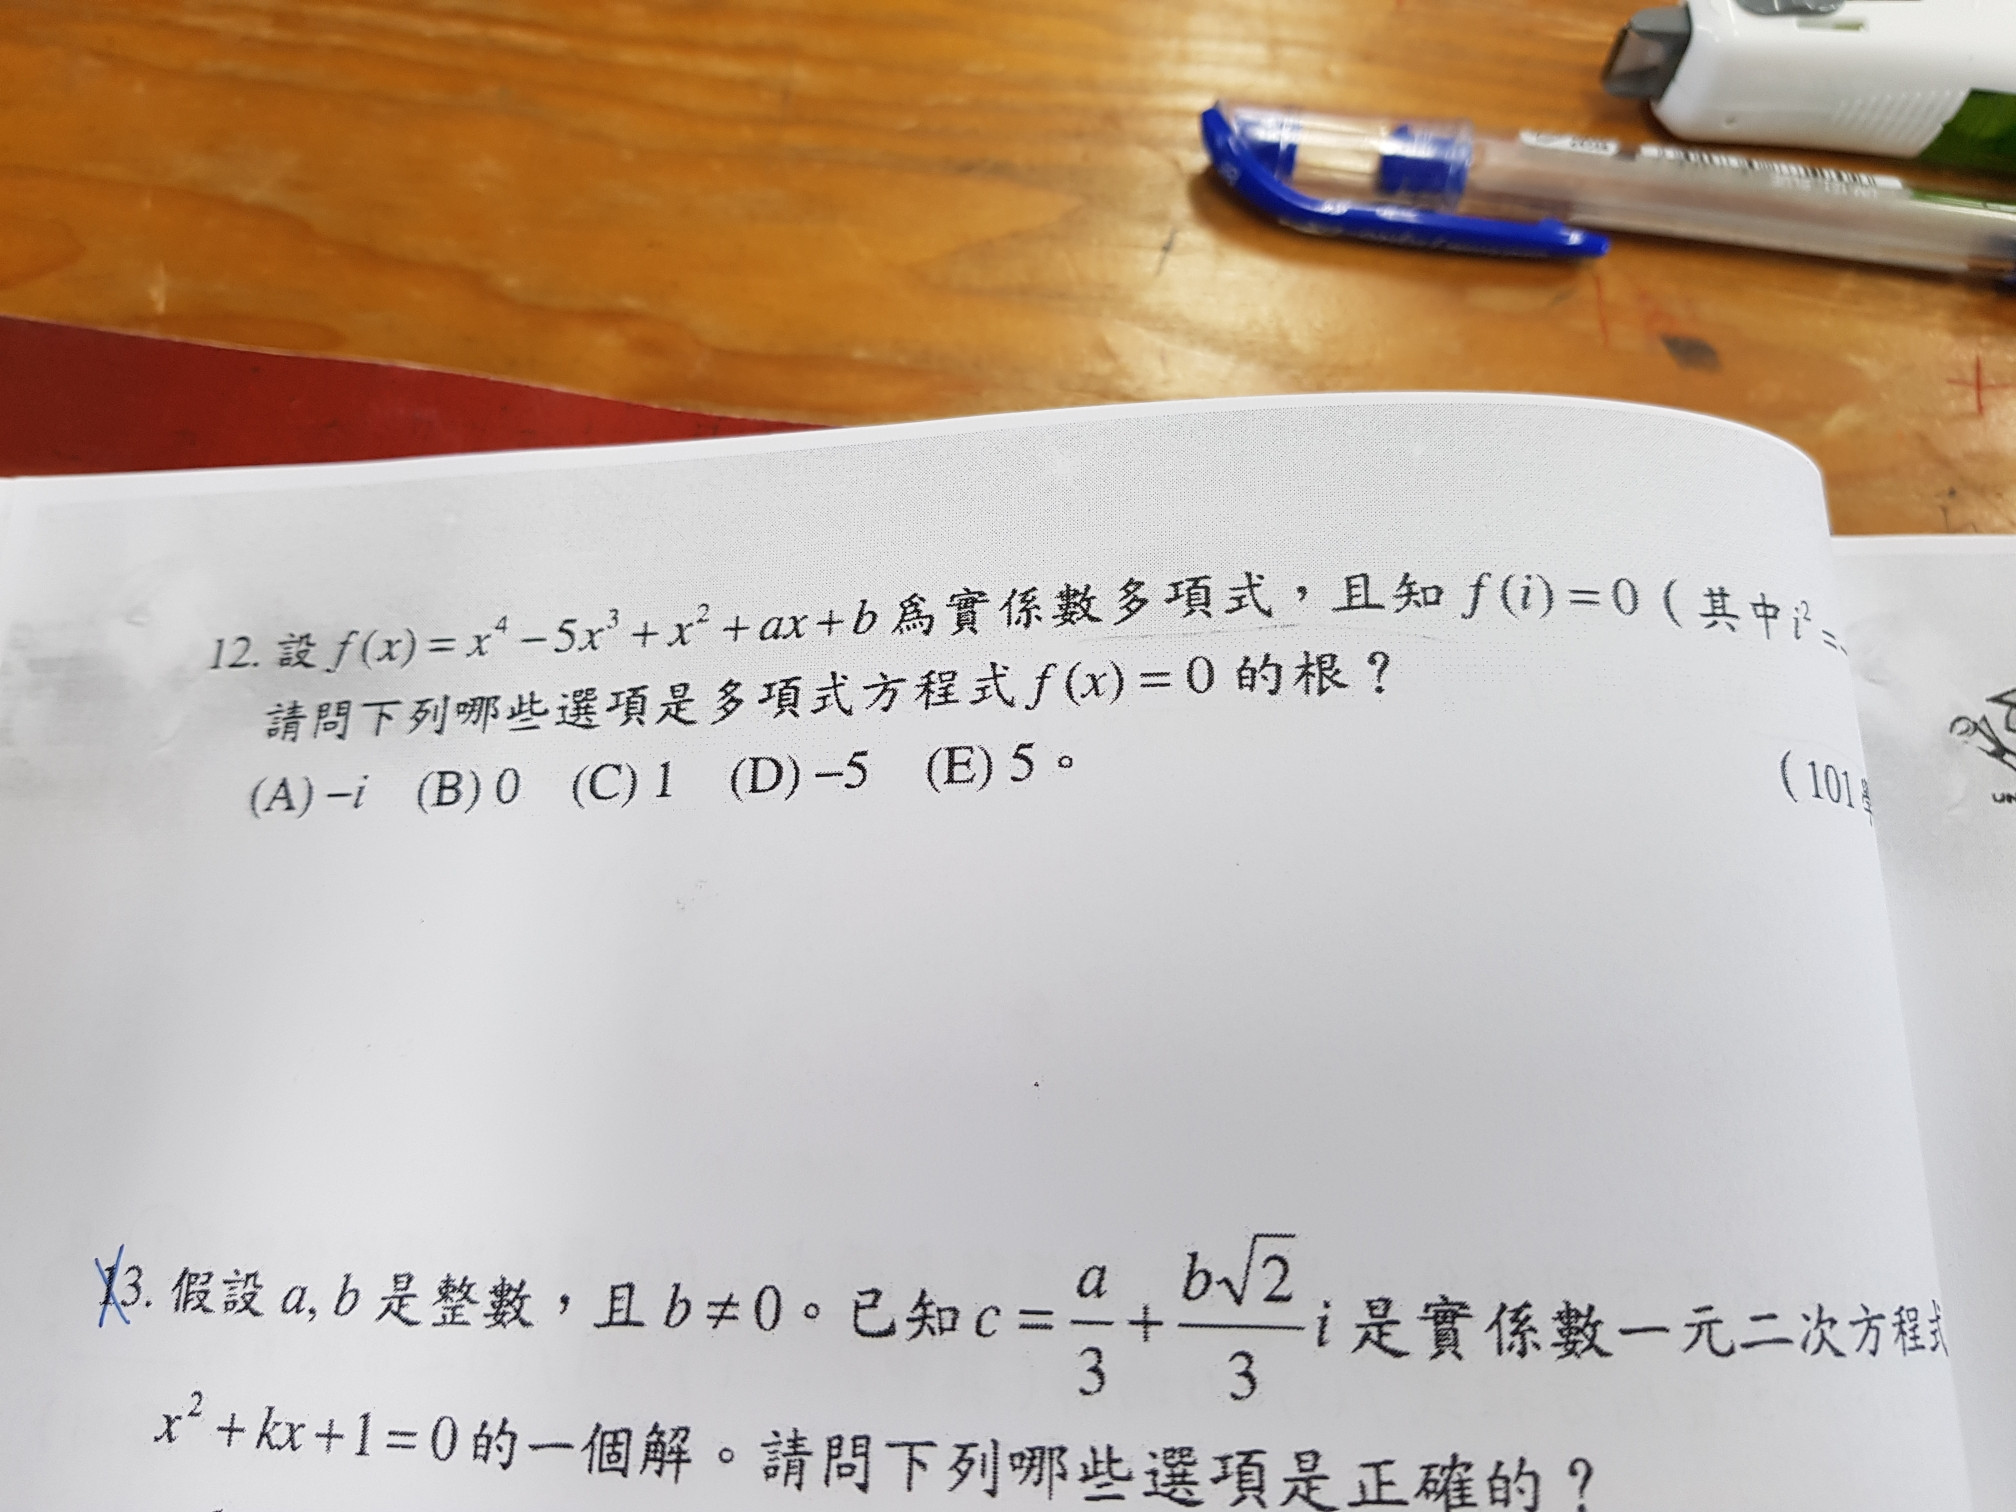 12. 設 f(x) = x⁴ − 5x³ + x² + ax + b 為實係數多項式，且知 f(i) = 0 ( 其中 i² =
請問下列哪些選項是多項式方程式 f(x) = 0 的根？
(A) −i (B) 0 (C) 1 (D) −5 (E) 5。
( 101
13. 假設 a, b 是整數，且 b ≠ 0。已知 c = a/3 + b√2/3 i 是實係數一元二次方程式
x² + kx + 1 = 0 的一個解。請問下列哪些選項是正確的？